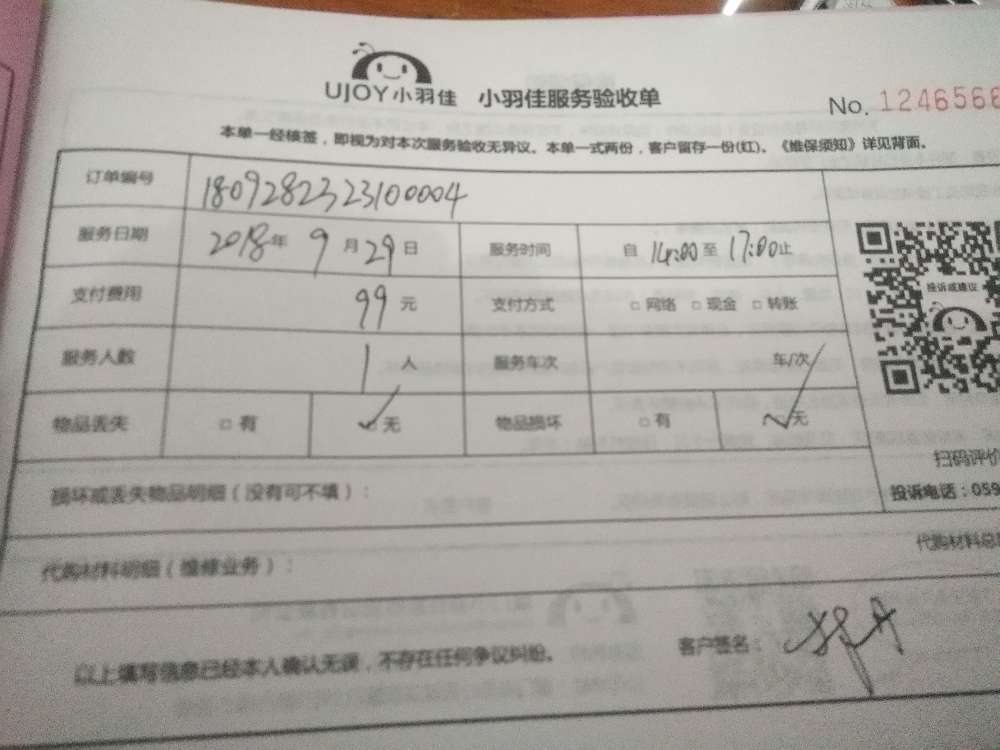 UJOY小羽佳 小羽佳服务验收单
No. 1246566
本单一经核签，即视为对本次服务验收无异议。本单一式两份，客户留存一份(红)。《维保须知》详见背面。
订单编号 1809282323100004
服务日期 2018年 9月29日 服务时间 自14:00至17:00止
支付费用 99元 支付方式 □网络 □现金 □转账
投诉或建议
服务人数 1人 服务车次 车/次
物品丢失 □有 ✓无 物品损坏 □有 ✓无
扫码评价
损坏或丢失物品明细（没有可不填）：
投诉电话：059
代购材料明细（维修业务）：
代购材料总
以上填写信息已经本人确认无误，不存在任何争议纠纷。 客户签名：